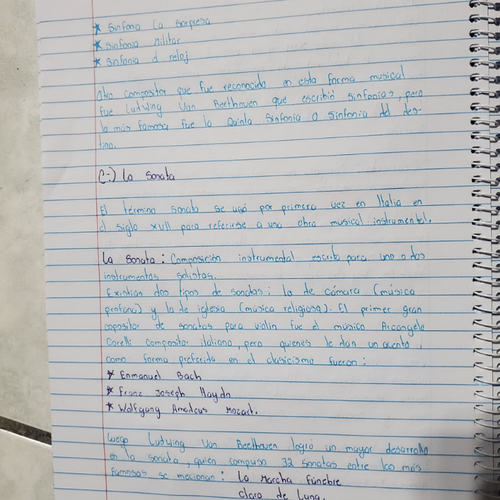 * Sinfonia La sorpresa
* Sinfonia militar
* Sinfonia el reloj
Otro compositor que fue reconocido en esta forma musical
fue Ludwing Van Beethoven que escribió sinfonías, pero
la más famosa fue la Quinta Sinfonia o sinfonia del des-
tino.
C-) La sonata
El término sonata se usó por primera vez en Italia en
el siglo XVII para referirse a una obra musical instrumental.
La sonata: Composición instrumental escrita para uno o dos
instrumentos solistas.
Existian dos tipos de sonatas: la de cámara (música
profana) y la de iglesia (música religiosa). El primer gran
copositor de sonatas para violin fue el músico Arcangelo
Corelli compositor italiano, pero quienes le dan un acento
como forma preferida en el clasicismo fueron:
* Enmanuel Bach
* Franz Joseph Haydn
* Wolfgang Amadeus Mozart.
Luego Ludwing Van Beethoven logró un mayor desarrollo
en la sonata, quien compuso 32 sonatas entre las más
famosas se mencionan: La Marcha Fúnebre
Claro de Luna.